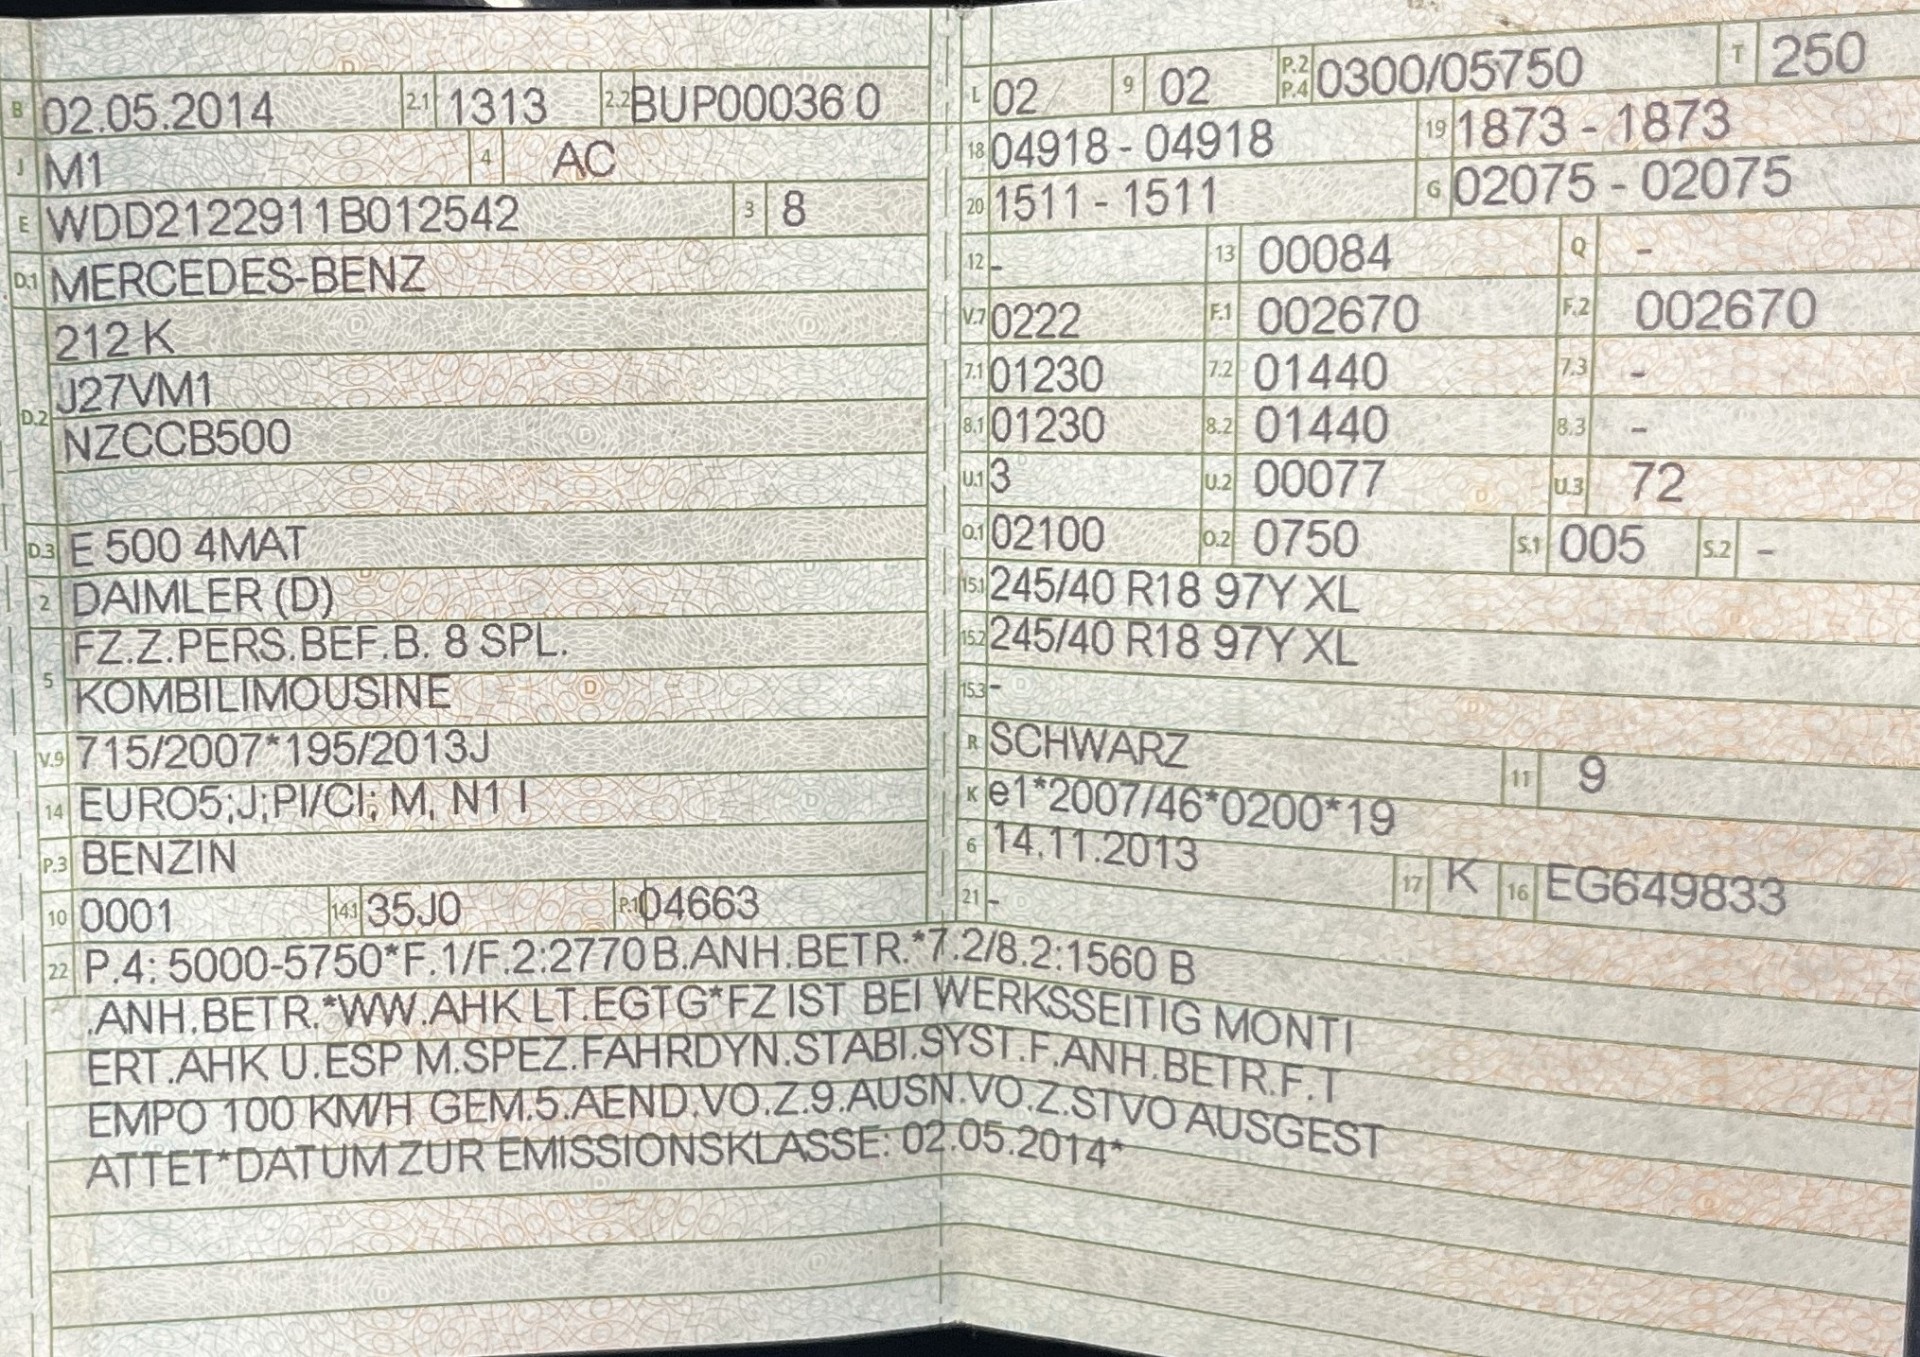 B 02.05.2014 2.1 1313 2.2 BUP00036 0
J M1 4 AC
E WDD2122911B012542 3 8
D.1 MERCEDES-BENZ
212 K
J27VM1
D.2 NZCCB500
D.3 E 500 4MAT
2 DAIMLER (D)
FZ.Z.PERS.BEF.B. 8 SPL.
5 KOMBILIMOUSINE
V.9 715/2007*195/2013J
14 EURO5;J;PI/CI; M, N1 I
P.3 BENZIN
10 0001 14.1 35J0 P.1 04663
L 02 9 02 P.2 P.4 0300/05750 T 250
18 04918 - 04918 19 1873 - 1873
20 1511 - 1511 G 02075 - 02075
12 - 13 00084 Q -
V.7 0222 F.1 002670 F.2 002670
7.1 01230 7.2 01440 7.3 -
8.1 01230 8.2 01440 8.3 -
U.1 3 U.2 00077 U.3 72
O.1 02100 O.2 0750 S.1 005 S.2 -
15.1 245/40 R18 97Y XL
15.2 245/40 R18 97Y XL
15.3 -
R SCHWARZ 11 9
K e1*2007/46*0200*19
6 14.11.2013 17 K 16 EG649833
21 -
22 P.4: 5000-5750*F.1/F.2:2770 B.ANH.BETR.*7.2/8.2:1560 B
.ANH.BETR.*WW.AHK LT.EGTG*FZ IST BEI WERKSSEITIG MONTI
ERT.AHK U.ESP M.SPEZ.FAHRDYN.STABI.SYST.F.ANH.BETR.F.T
EMPO 100 KM/H GEM.5.AEND.VO.Z.9.AUSN.VO.Z.STVO AUSGEST
ATTET*DATUM ZUR EMISSIONSKLASSE: 02.05.2014*